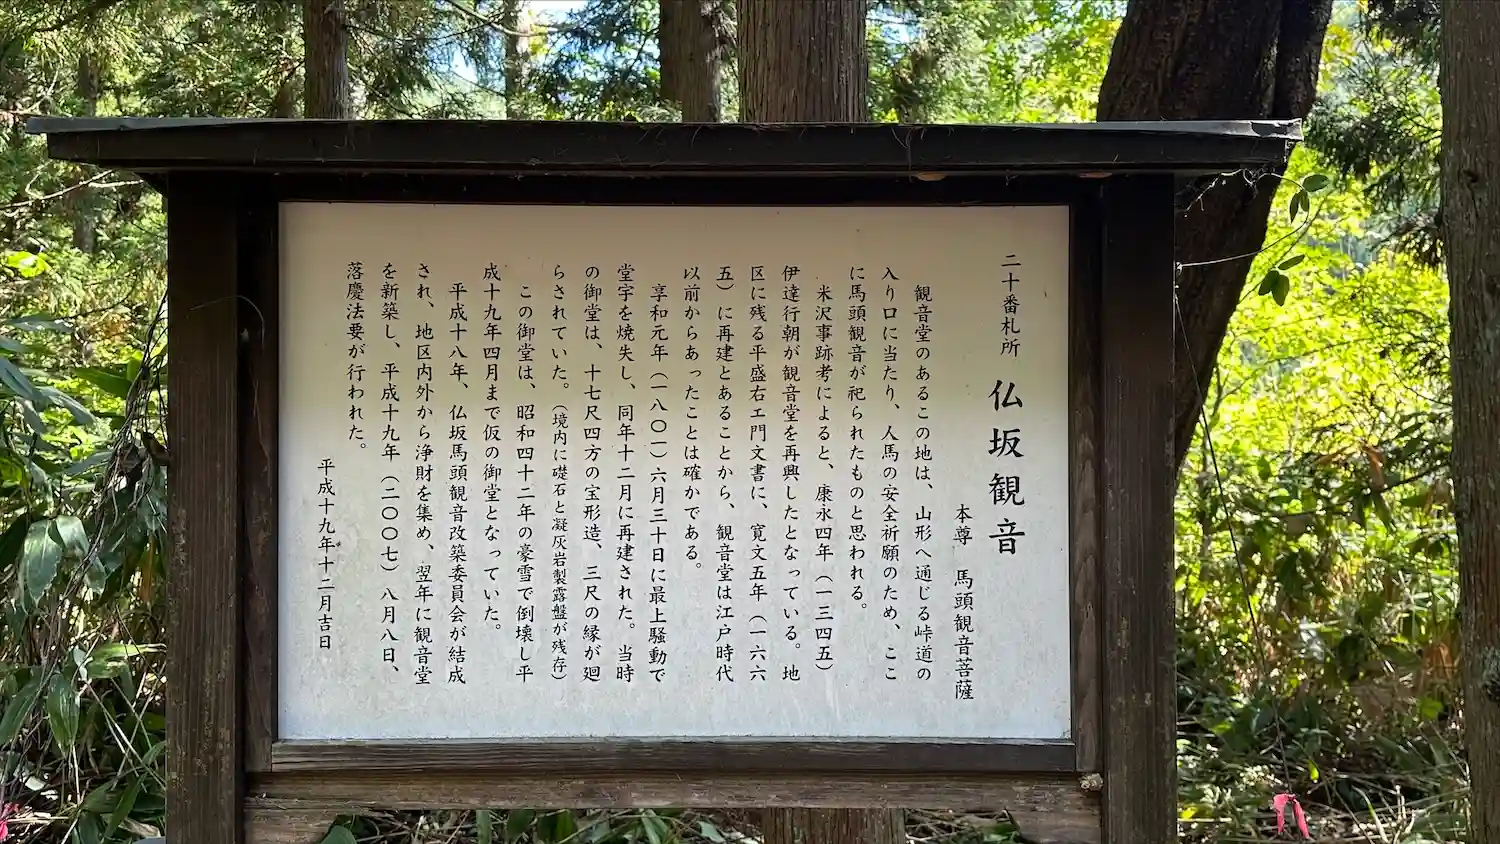 二十番札所　仏坂観音
本尊　馬頭観音菩薩
観音堂のあるこの地は、山形へ通じる峠道の
入り口に当たり、人馬の安全祈願のため、ここ
に馬頭観音が祀られたものと思われる。
米沢事跡考によると、康永四年（一三四五）
伊達行朝が観音堂を再興したとなっている。地
区に残る平盛右エ門文書に、寛文五年（一六六
五）に再建とあることから、観音堂は江戸時代
以前からあったことは確かである。
享和元年（一八〇一）六月三十日に最上騒動で
堂宇を焼失し、同年十二月に再建された。当時
の御堂は、十七尺四方の宝形造、三尺の縁が廻
らされていた。（境内に礎石と凝灰岩製露盤が残存）
この御堂は、昭和四十二年の豪雪で倒壊し平
成十九年四月まで仮の御堂となっていた。
平成十八年、仏坂馬頭観音改築委員会が結成
され、地区内外から浄財を集め、翌年に観音堂
を新築し、平成十九年（二〇〇七）八月八日、
落慶法要が行われた。
平成十九年十二月吉日